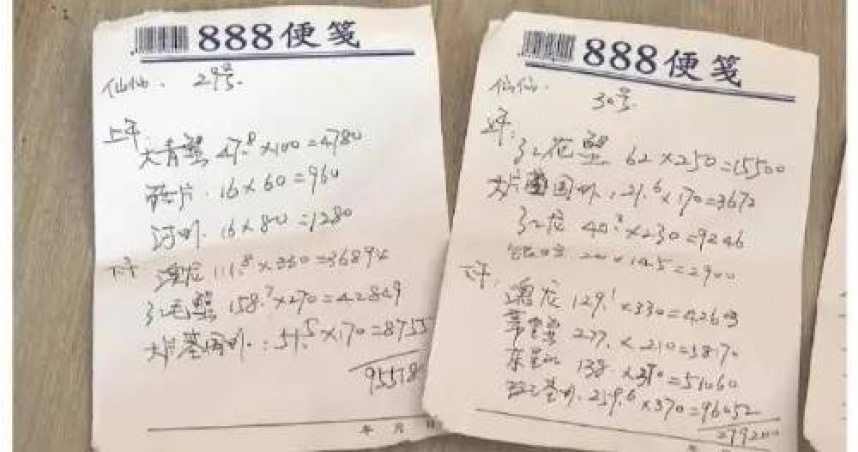 888便笺
仙仙. 29号.
上午.
大青蟹 47.8×100=4780
16×60=960
16×80=1280
下午 澳龙 111.8×330=36894
红毛蟹 158.7×270=42849
大片基围虾.: 51.5×170=8755
95518
年 月 日
888便笺
仙仙. 30号.
上午:
红花蟹 62×250=15500
大片基围虾.: 21.6×170=3672
红龙 40.2×230=9246
200×14.5=2900
下午: 澳龙 129.1×330=42603
277×210=5817
东星斑 138×370=51060
259.6×370=96052
年